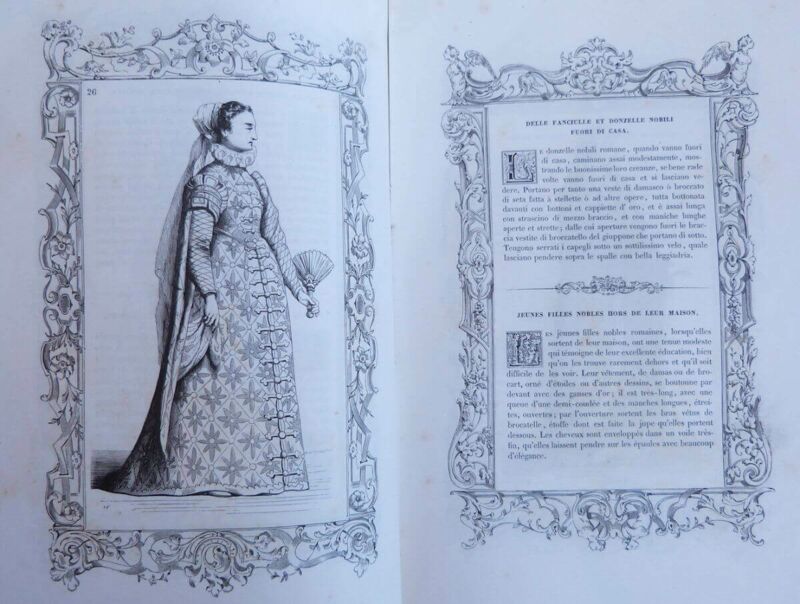 26
DELLE FANCIULLE ET DONZELLE NOBILI
FUORI DI CASA.
LE donzelle nobili romane, quando vanno fuori
di casa, caminano assai modestamente, mos-
trando le buonissime loro creanze, se bene rade
volte vanno fuori di casa et si lasciano ve-
dere. Portano per tanto una veste di damasco ò broccato
di seta fatta à stellette ò ad altre opere, tutta bottonata
davanti con bottoni et cappiette d' oro, et è assai lunga
con strascino di mezzo braccio, et con maniche lunghe
aperte et strette; dalle cui aperture vengono fuori le brac-
cia vestite di broccatello del giuppone che portano di sotto.
Tengono serrati i capegli sotto un sottilissimo velo, quale
lasciano pendere sopra le spalle con bella leggiadria.
JEUNES FILLES NOBLES HORS DE LEUR MAISON.
LES jeunes filles nobles romaines, lorsqu'elles
sortent de leur maison, ont une tenue modeste
qui témoigne de leur excellente éducation, bien
qu'on les trouve rarement dehors et qu'il soit
difficile de les voir. Leur vêtement, de damas ou de bro-
cart, orné d'étoiles ou d'autres dessins, se boutonne par
devant avec des ganses d'or; il est très-long, avec une
queue d'une demi-coudée et des manches longues, étroi-
tes, ouvertes; par l'ouverture sortent les bras vêtus de
brocatelle, étoffe dont est faite la jupe qu'elles portent
dessous. Les cheveux sont enveloppés dans un voile très-
fin, qu'elles laissent pendre sur les épaules avec beaucoup
d'élégance.